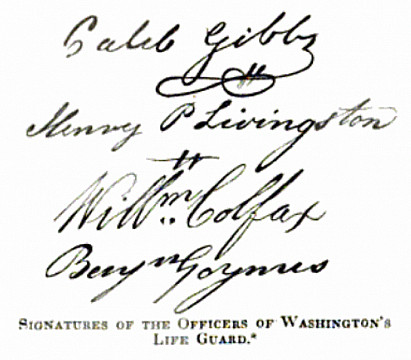 Caleb Gibbs
Henry P Livingston
Willm Colfax
Benjn Goymes
SIGNATURES OF THE OFFICERS OF WASHINGTON'S
LIFE GUARD.*